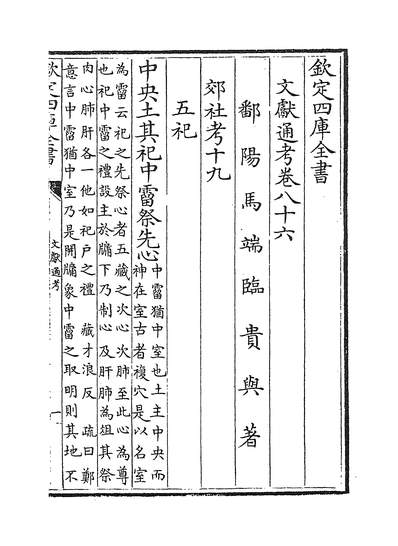 欽定四庫全書
文獻通考卷八十六
鄱陽馬端臨貴與著
郊社考十九
五祀
中央土其祀中霤祭先心中霤猶中室也土主中央而
神在室古者複穴是以名室
為霤云祀之先祭心者五藏之次心次肺至此心為尊
也祀中霤之禮設主於牖下乃制心及肝肺為俎其祭
肉心肺肝各一他如祀戶之禮 藏才浪反 疏曰鄭
意言中霤猶中室乃是開牖象中霤之取明則其地不
欽定四庫全書
文獻通考
一